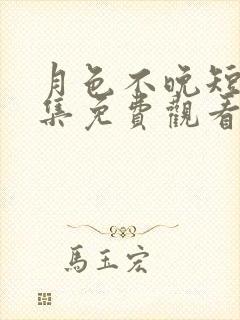 月色不晚短
集免費觀看
馬玉宏